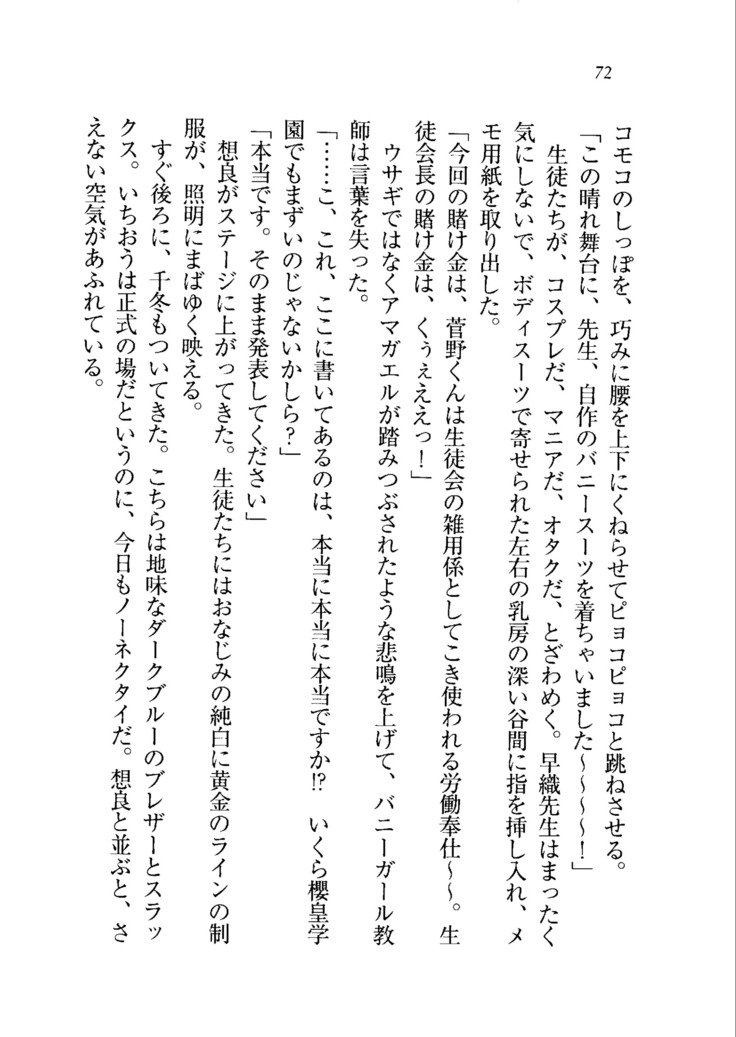 72
コモコのしっぽを、巧みに腰を上下にくねらせてピョコピョコと跳ねさせる。
「この晴れ舞台に、先生、自作のバニースーツを着ちゃいました～～～～！」
生徒たちが、コスプレだ、マニアだ、オタクだ、とざわめく。早織先生はまったく
気にしないで、ボディスーツで寄せられた左右の乳房の深い谷間に指を挿し入れ、メ
モ用紙を取り出した。
「今回の賭け金は、菅野くんは生徒会の雑用係としてこき使われる労働奉仕～～。生
徒会長の賭け金は、くぅぇええっ！」
ウサギではなくアマガエルが踏みつぶされたような悲鳴を上げて、バニーガール教
師は言葉を失った。
「……こ、これ、ここに書いてあるのは、本当に本当に本当ですか!?　いくら櫻皇学
園でもまずいのじゃないかしら？」
「本当です。そのまま発表してください」
想良がステージに上がってきた。生徒たちにはおなじみの純白に黄金のラインの制
服が、照明にまばゆく映える。
すぐ後ろに、千冬もついてきた。こちらは地味なダークブルーのブレザーとスラッ
クス。いちおうは正式の場だというのに、今日もノーネクタイだ。想良と並ぶと、さ
えない空気があふれている。